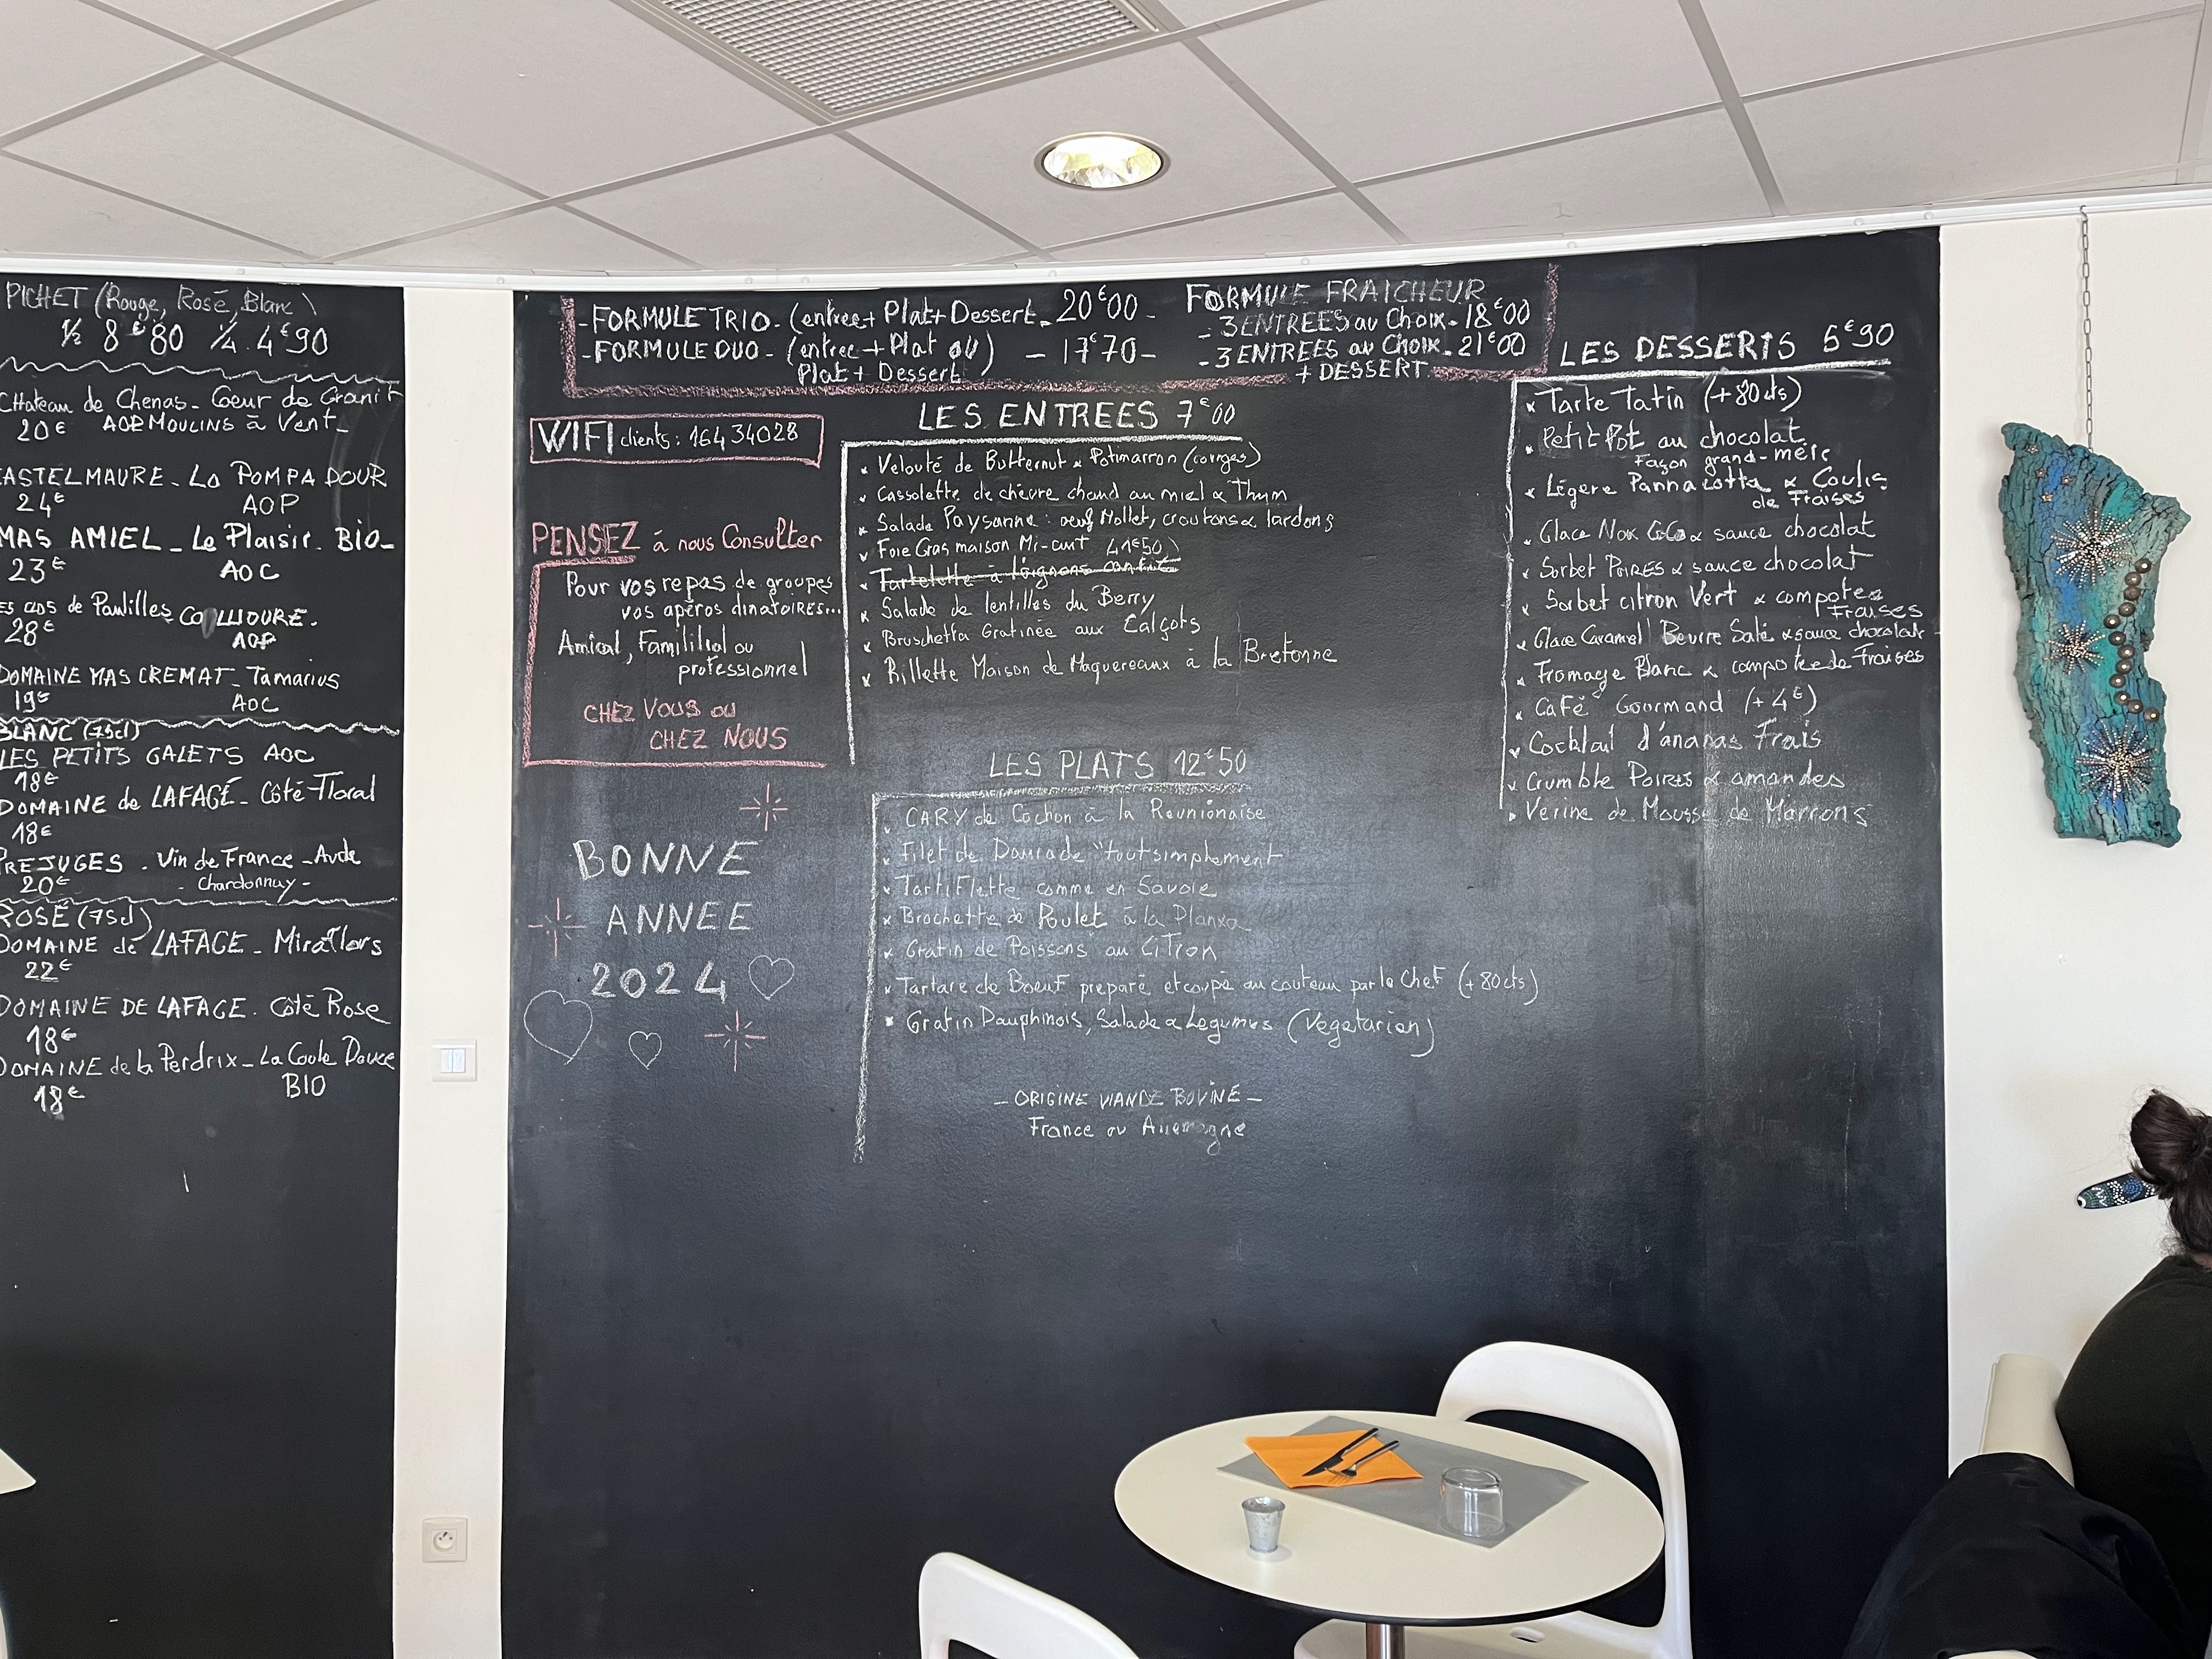 PICHET (Rouge, Rosé, Blanc)
½ 8€80 ¼ 4€90
CHateau de Chenas - Coeur de Granit
20€ AOP MOULINS à Vent -
ASTELMAURE - La POMPADOUR
24€ AOP
MAS AMIEL - Le Plaisir - BIO -
23€ AOC
ES CLOS de Paulilles - COLLIOURE -
28€ AOP
DOMAINE MAS CREMAT - Tamarius
19€ AOC
BLANC (75cl)
LES PETITS GALETS AOC
18€
DOMAINE de LAFAGE - Côté Floral
18€
PREJUGES - Vin de France - Aude
20€ - Chardonnay -
ROSÉ (75cl)
DOMAINE de LAFAGE - Miraflors
22€
DOMAINE DE LAFAGE - Côté Rose
18€
DOMAINE de la Perdrix - La Coule Douce
18€ BIO
- FORMULE TRIO - (entree + Plat + Dessert - 20€00 -
- FORMULE DUO - (entree + Plat ou) - 17€70 -
Plat + Dessert
FORMULE FRAICHEUR
- 3 ENTREES au Choix - 18€00
- 3 ENTREES au Choix - 21€00
+ DESSERT
WIFI clients : 16434028
PENSEZ à nous Consulter
Pour vos repas de groupes
vos apéros dinatoires...
Amical, Familial ou
professionnel
CHEZ VOUS ou
CHEZ NOUS
BONNE
ANNEE
2024
LES ENTREES 7€00
x Velouté de Butternut & Potimarron (courges)
x Cassolette de chèvre chaud au miel & Thym
x Salade Paysanne : oeuf Mollet, croutons & lardons
x Foie Gras maison Mi-cuit (+1€50)
x Tartelette à l'oignons confits
x Salade de lentilles du Berry
x Bruschetta Gratinée aux Calçots
x Rillette Maison de Maquereaux à la Bretonne
LES PLATS 12€50
x CARY de Cochon à la Reunionaise
x Filet de Daurade "tout simplement
x Tartiflette comme en Savoie
x Brochette de Poulet à la Planxa
x Gratin de Poissons au CiTron
x Tartare de Boeuf preparé et coupé au couteau par le Chef (+80cts)
x Gratin Dauphinois, Salade & Legumes (Vegetarien)
- ORIGINE VIANDE BOVINE -
France ou Allemagne
LES DESSERTS 6€90
x Tarte Tatin (+80cts)
x Petit Pot au chocolat
Façon grand-mère
x Légère Panna cotta & Coulis
de Fraises
x Glace Noix CoCo & sauce chocolat
x Sorbet POIRES & sauce chocolat
x Sorbet citron Vert & compotee
Fraises
x Glace Caramel Beurre Salé & sauce chocolat
x Fromage Blanc & compotee de Fraises
x Café Gourmand (+4€)
x Cocktail d'ananas Frais
x Crumble Poires & amandes
x Verine de Mousse de Marrons